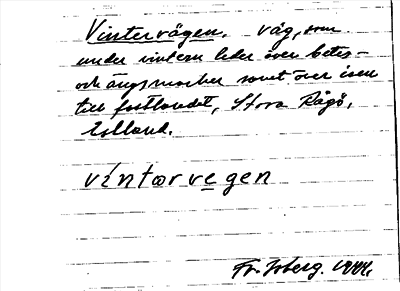 Vintervägen. väg, som
under vintern leder över betes-
och ängsmarker samt över isen
till fastlandet, Stora Rågö,
Estland.
víntœrvegen
Fr. Isberg. 1944.